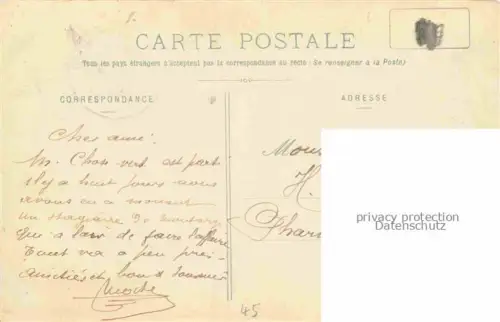 CARTE POSTALE
Tous les pays étrangers n'acceptent pas la correspondance au recto: (Se renseigner à la Poste)
CORRESPONDANCE
ADRESSE
Cher ami.
M. est parti
il y a huit jours nous
avons en ce moment
un stagiaire
qui a l'air de faire l'affaire
Tout va a peu près
amitiés et bon
Mous
H.
Phar
privacy protection
Datenschutz
45